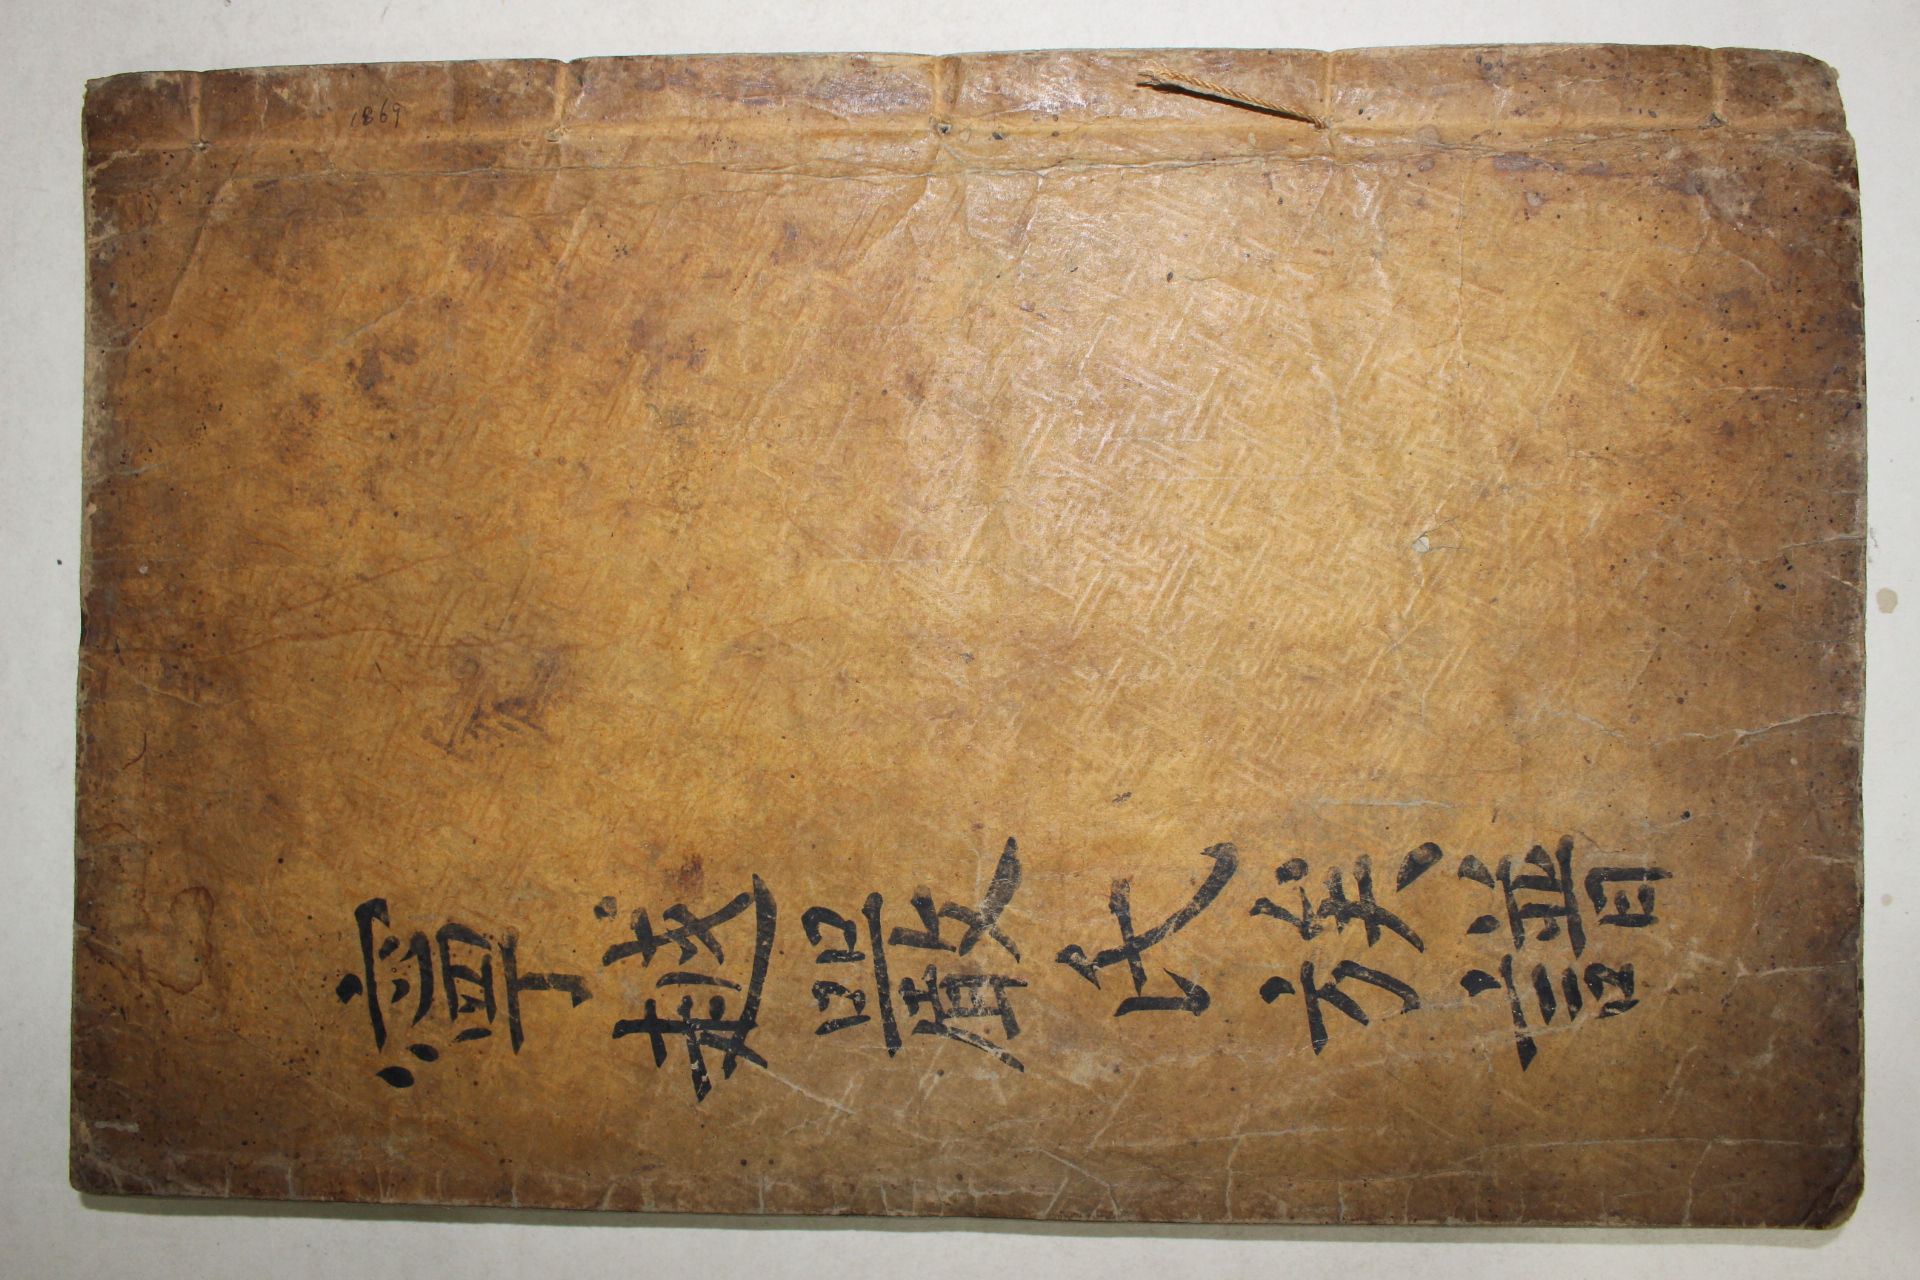 1869
寧越嚴氏族譜